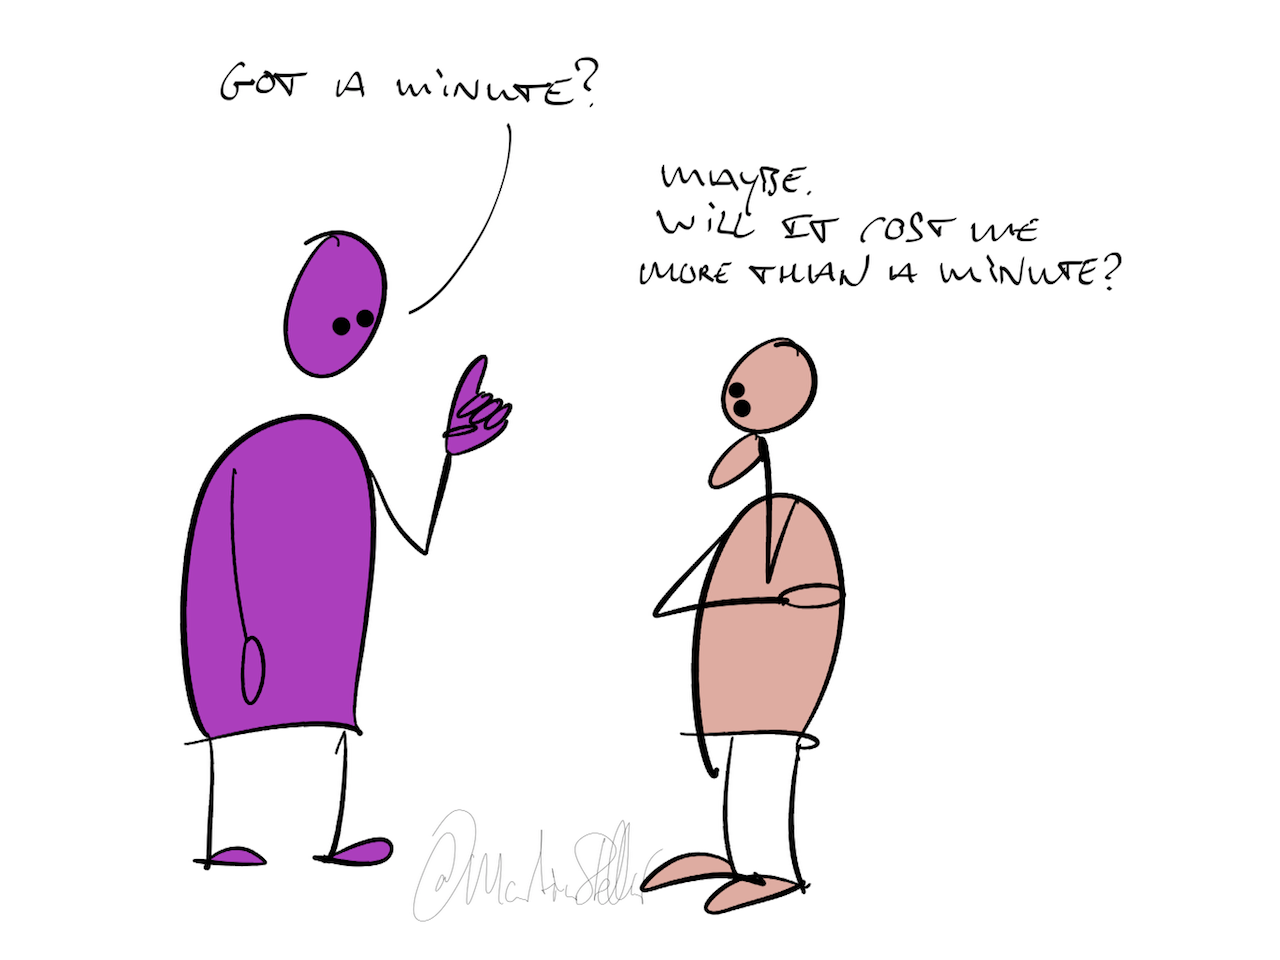 GOT A MINUTE?
MAYBE.
WILL IT COST ME
MORE THAN A MINUTE?
@MartinStellar